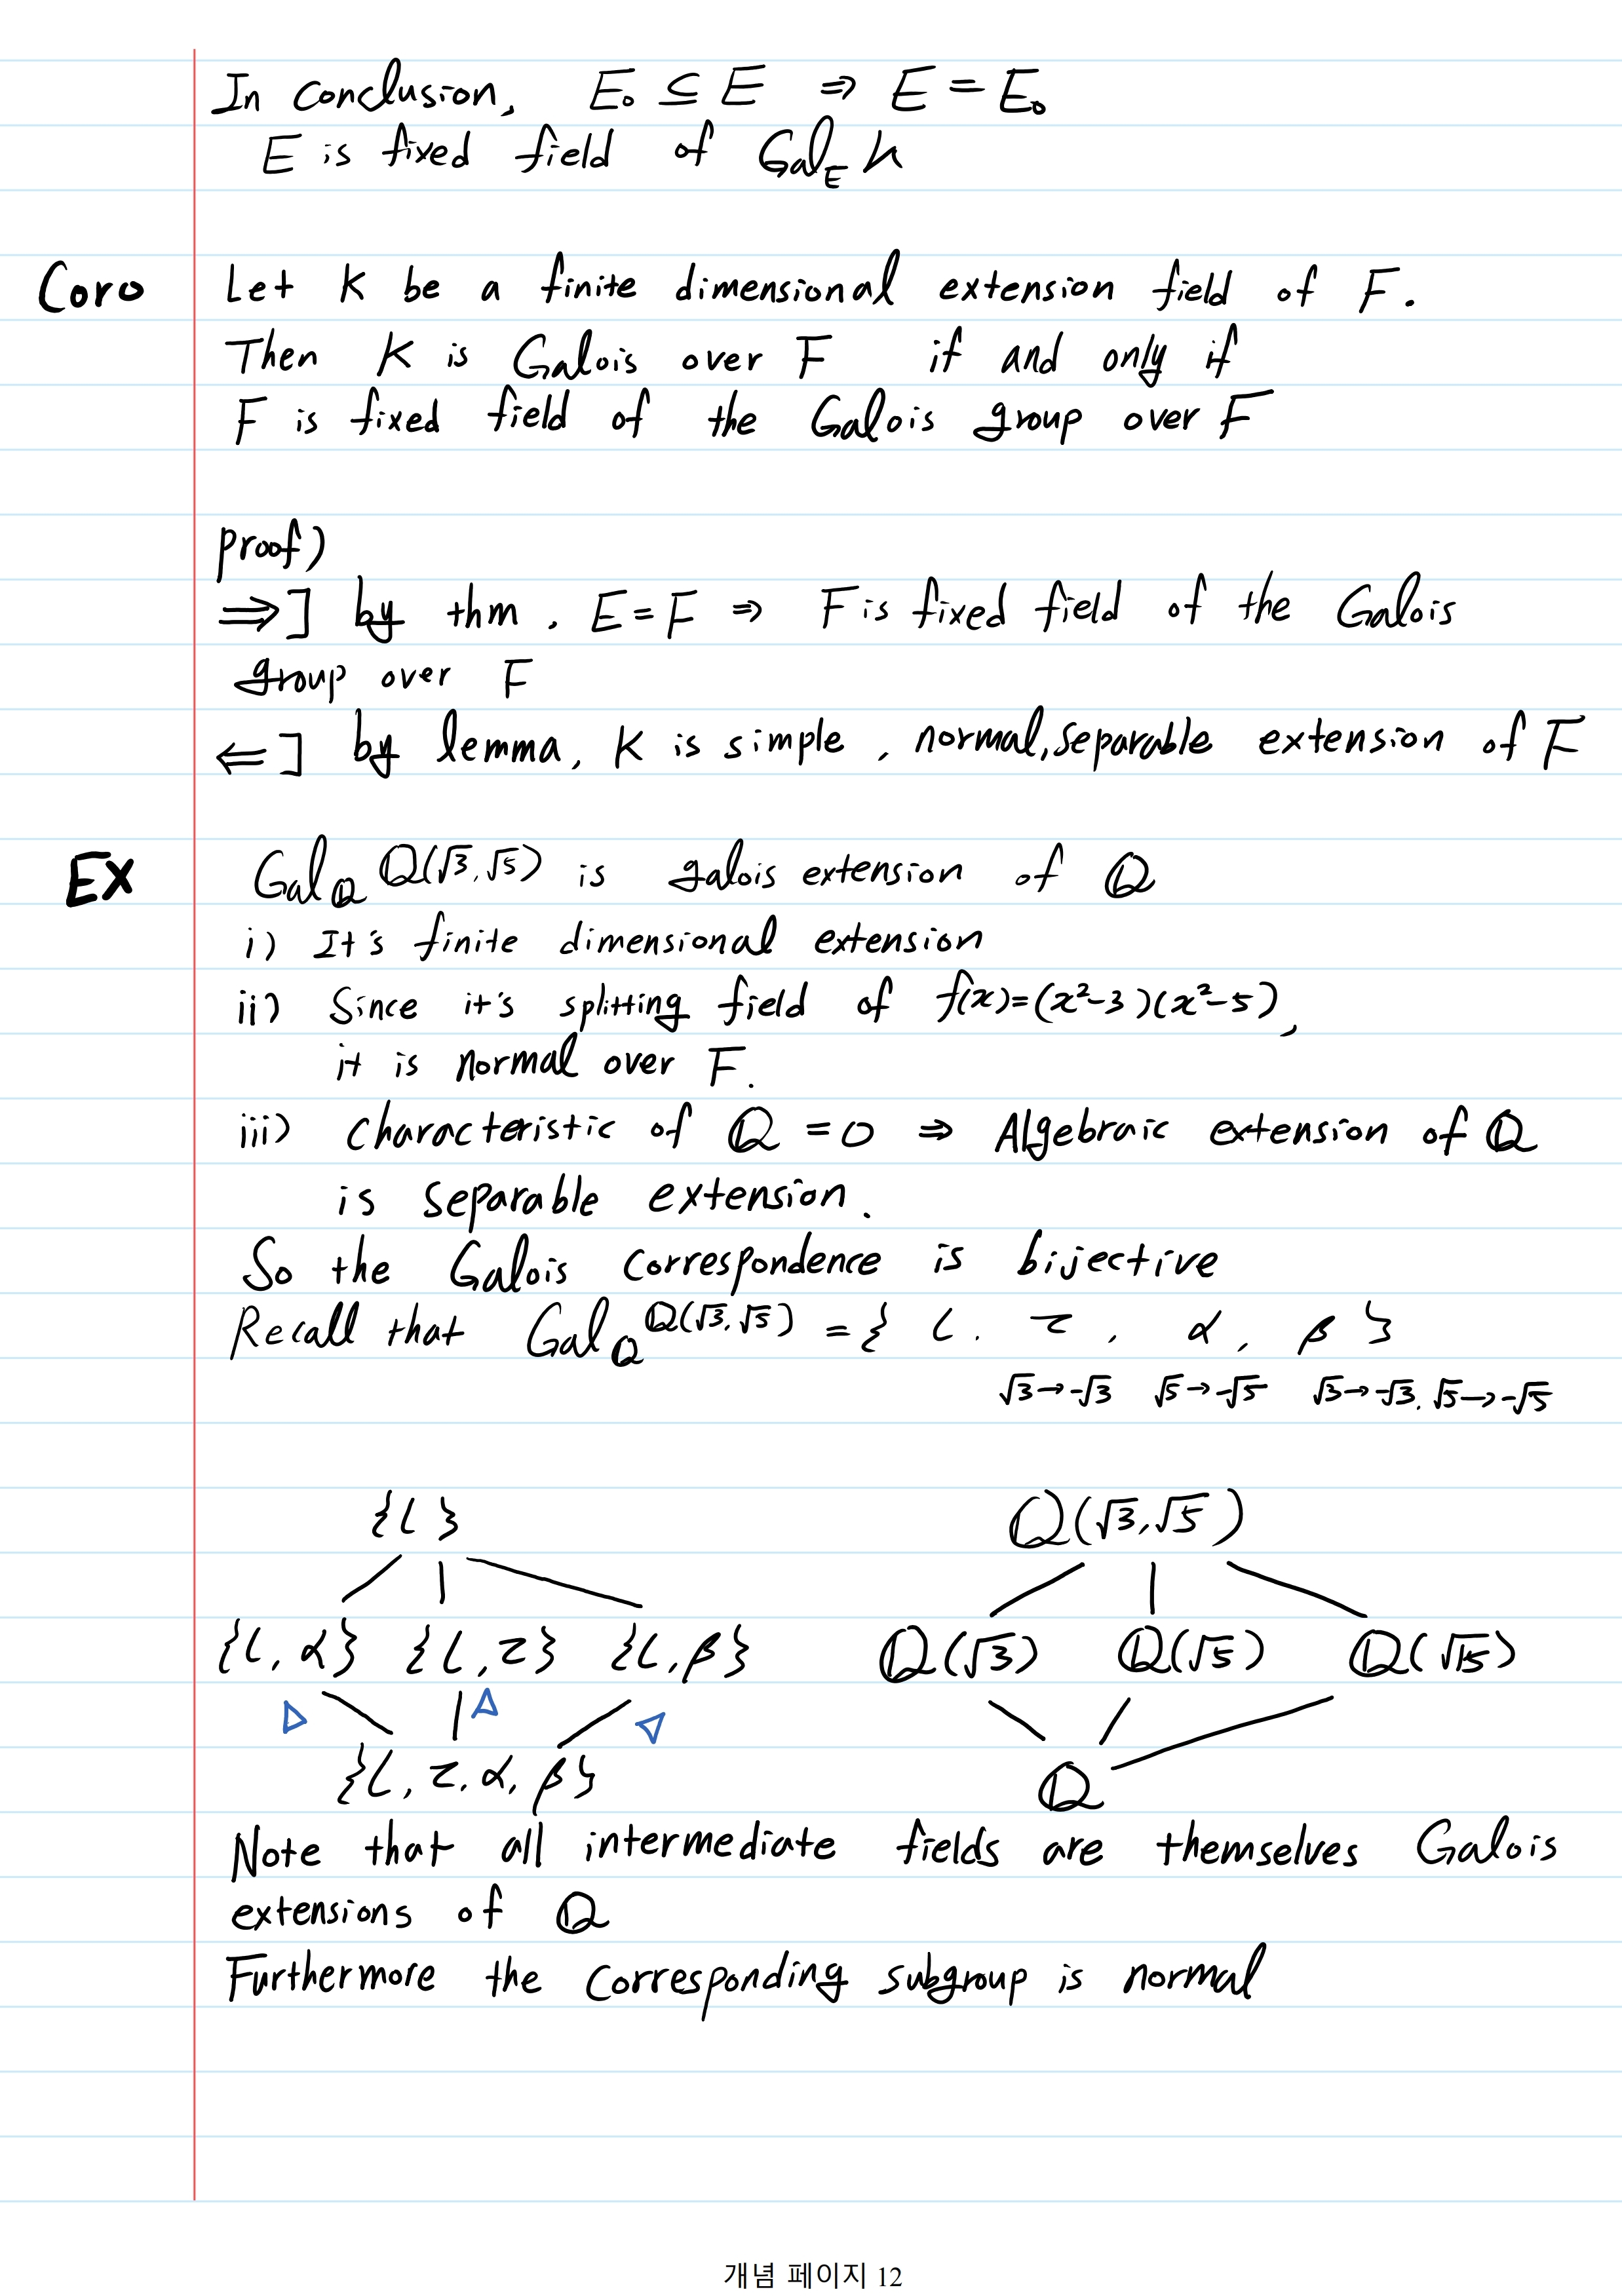 In conclusion, E₀ ⊆ E ⇒ E = E₀
E is fixed field of Gal_E K
Coro Let K be a finite dimensional extension field of F.
Then K is Galois over F if and only if
F is fixed field of the Galois group over F
proof)
⇒] by thm. E=F ⇒ F is fixed field of the Galois
group over F
⇐] by lemma, K is simple, normal, separable extension of F
EX Gal_ℚ ℚ(√3,√5) is galois extension of ℚ
i) It's finite dimensional extension
ii) Since it's splitting field of f(x)=(x²-3)(x²-5),
it is normal over F.
iii) characteristic of ℚ = 0 ⇒ Algebraic extension of ℚ
is separable extension.
So the Galois correspondence is bijective
Recall that Gal_ℚ ℚ(√3,√5) = { ι, τ, α, β }
√3→-√3 √5→-√5 √3→-√3, √5→-√5
{ι} ℚ(√3,√5)
{ι, α} {ι, τ} {ι, β} ℚ(√3) ℚ(√5) ℚ(√15)
▷ △ ◁
{ι, τ, α, β} ℚ
Note that all intermediate fields are themselves Galois
extensions of ℚ
Furthermore the corresponding subgroup is normal
개념 페이지 12